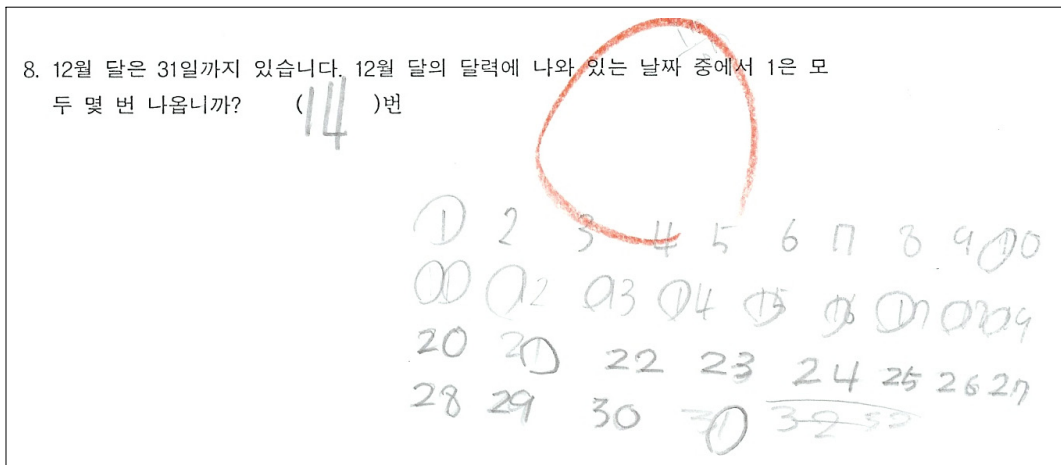 8. 12월 달은 31일까지 있습니다. 12월 달의 달력에 나와 있는 날짜 중에서 1은 모
두 몇 번 나옵니까? (14)번
1 2 3 4 5 6 7 8 9 10
11 12 13 14 15 16 17 18 19
20 21 22 23 24 25 26 27
28 29 30 31 32